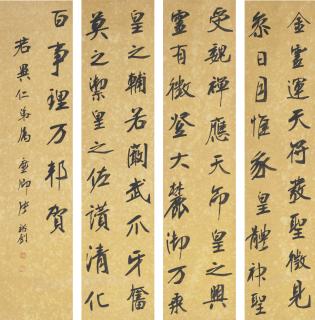 金靈運天符發聖徵見
參日月惟我皇體神聖
受魏禪應天命皇之興
靈有徵登大麓御万乘
皇之輔若闞武爪牙奮
莫之禦皇之佐讚清化
百事理万邦賀
若巽仁弟属 廉卿張裕釗